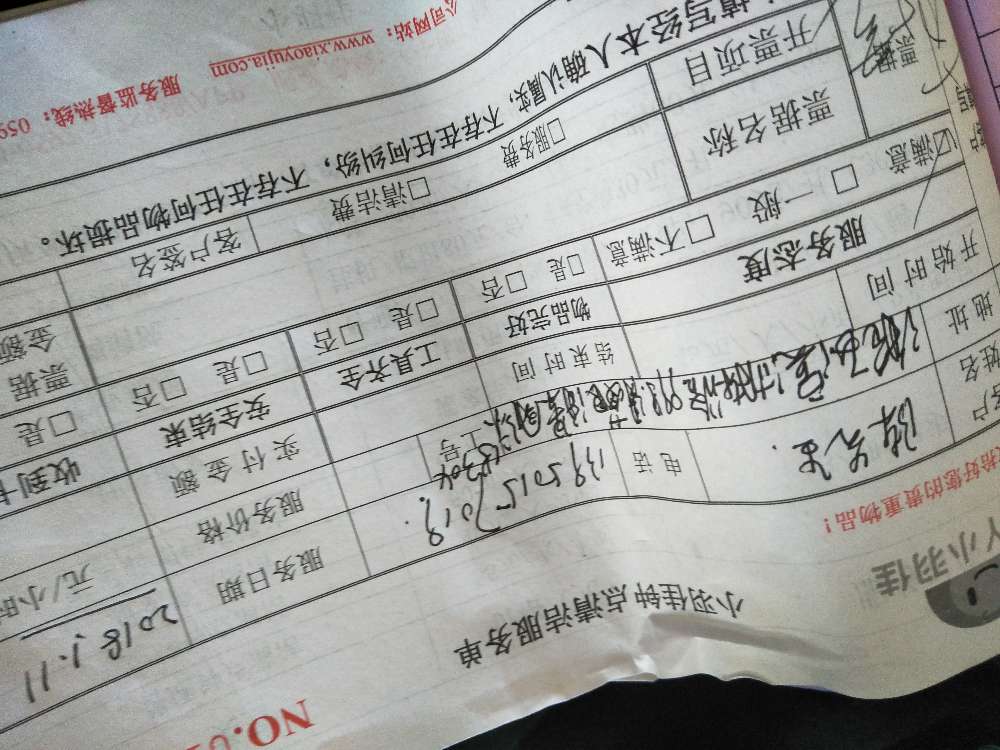 NO.0
小羽佳
小羽佳钟点清洁服务单
拾好您的贵重物品！
户姓名 陈先生. 电话 139 5015 7019. 服务日期 2018.1.11
地址 服务价格 元/小时
开始时间 结束时间 工号 实付金额
服务态度 物品完好 工具齐全 安全结束 收到
满意 □一般 □不满意 □是 □否 □是 □否 □是 □否 □是
票据名称 票据金额
开票项目 □服务费 □清洁费 客户签名
填写经本人确认属实，不存在任何纠纷，不存在任何物品损坏。
公司网站：www.xiaoyujia.com 服务监督热线：059